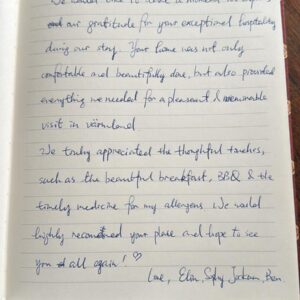 We would like to
our gratitude for your exceptional hospitality
during our stay. Your home was not only
comfortable and beautifully done, but also provided
everything we needed for a pleasant & memorable
visit in värmland.
We truly appreciated the thoughtful touches,
such as the beautiful breakfast, BBQ & the
timely medicine for my allergens. We would
highly recommend your place and hope to see
you all again! ♡
Love, Elin, Jackson, Ben